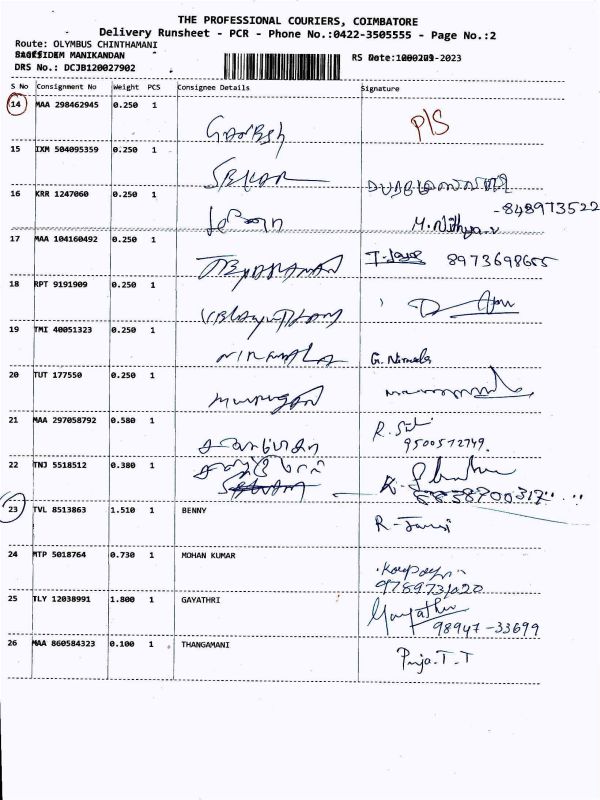 THE PROFESSIONAL COURIERS, COIMBATORE
Delivery Runsheet - PCR - Phone No.:0422-3505555 - Page No.:2
Route: OLYMBUS CHINTHAMANI
MANIKANDAN
DRS No.: DCJB120027902
RS Date: -2023
S No Consignment No Weight PCS Consignee Details Signature
14 MAA 298462945 0.250 1 GANESH P/S
15 IXM 504095359 0.250 1 SEKAR
16 KRR 1247060 0.250 1
-848973522
M. Nithya.v
17 MAA 104160492 0.250 1 JEYARAMAN 8973698655
18 RPT 9191909 0.250 1
19 TMI 40051323 0.250 1 NIRAMALA G. Nirmala
20 TUT 177550 0.250 1 murugan
21 MAA 297058792 0.580 1
9500572749.
22 TNJ 5518512 0.380 1
23 TVL 8513863 1.510 1 BENNY
24 MTP 5018764 0.730 1 MOHAN KUMAR
25 TLY 12038991 1.800 1 GAYATHRI Gayathri
98947-33699
26 MAA 860584323 0.100 1 THANGAMANI Puja.T.T